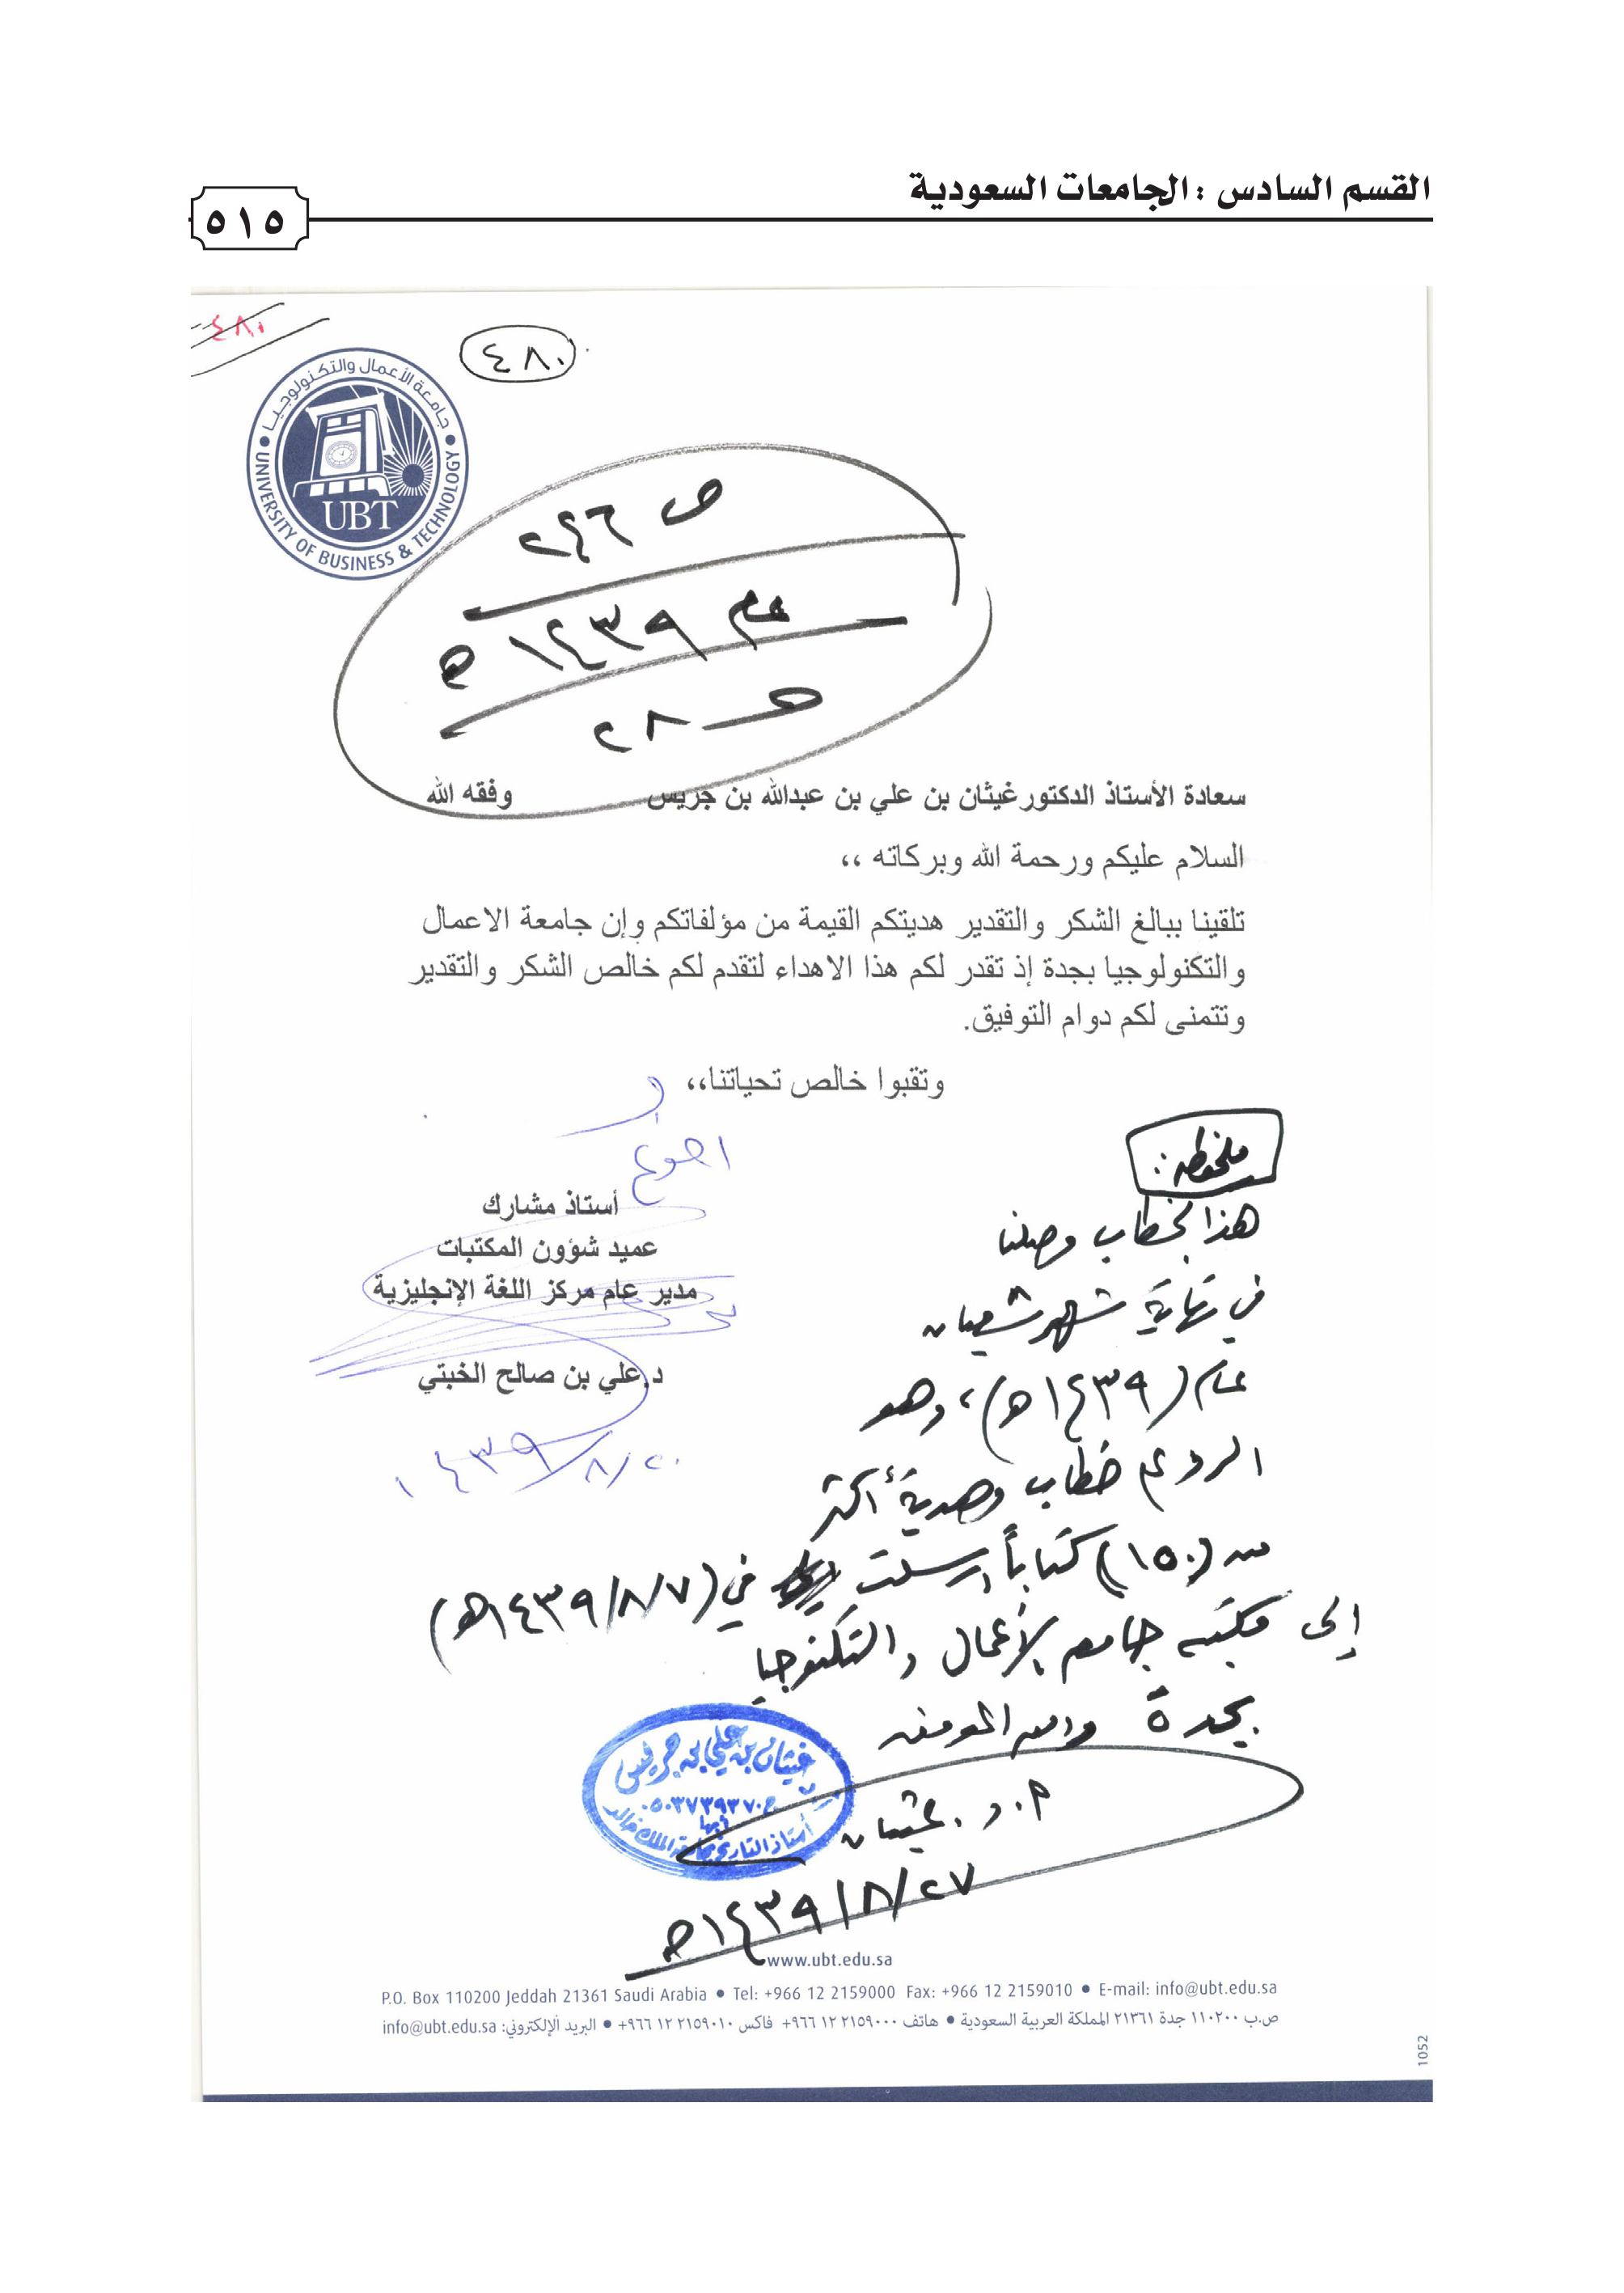 القسم السادس : الجامعات السعودية
٥١٥
٤٨٠
٤٨٠
جامعة الأعمال والتكنولوجيا
UBT
UNIVERSITY OF BUSINESS & TECHNOLOGY
ص ٢٤٦
عام ١٤٣٩ هـ
هـ ٢٨
سعادة الأستاذ الدكتور غيثان بن علي بن عبدالله بن جريس وفقه الله
السلام عليكم ورحمة الله وبركاته ،،
تلقينا ببالغ الشكر والتقدير هديتكم القيمة من مؤلفاتكم وإن جامعة الاعمال
والتكنولوجيا بجدة إذ تقدر لكم هذا الاهداء لتقدم لكم خالص الشكر والتقدير
وتتمنى لكم دوام التوفيق.
وتقبوا خالص تحياتنا،،
أستاذ مشارك
عميد شؤون المكتبات
مدير عام مركز اللغة الإنجليزية
د.علي بن صالح الخبتي
١٤٣٩/٨/٢٠
ملحوظة :
هذا الخطاب وصلنا
في نهاية شهر شعبان
عام (١٤٣٩هـ)، وهو
الرد على خطاب وهدية أكثر
من (١٥٠) كتاباً أرسلت في (١٤٣٩/٨/٧هـ)
إلى مكتبة جامعة الأعمال والتكنولوجيا
بجدة والله الموفق
أ.د. غيثان
١٤٣٩/٨/٢٧هـ
غيثان بن علي بن جريس
ج٠٥٠٣٧٣٩٣٧٠
أستاذ التاريخ بجامعة الملك خالد
أبها
www.ubt.edu.sa
P.O. Box 110200 Jeddah 21361 Saudi Arabia ● Tel: +966 12 2159000 Fax: +966 12 2159010 ● E-mail: info@ubt.edu.sa
ص.ب ١١٠٢٠٠ جدة ٢١٣٦١ المملكة العربية السعودية ● هاتف ٢١٥٩٠٠٠ ١٢ ٩٦٦+ فاكس ٢١٥٩٠١٠ ١٢ ٩٦٦+ ● البريد الإلكتروني: info@ubt.edu.sa
1052